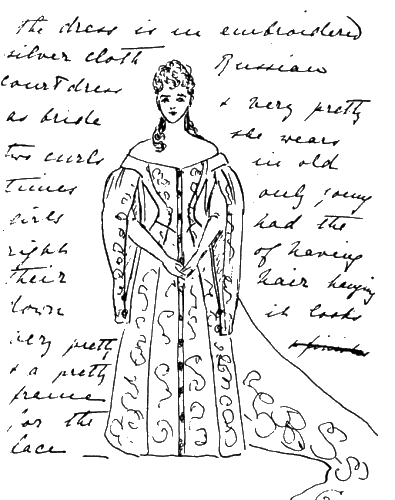 The dress is in embroidered
silver cloth Russian
court dress & very pretty
as bride she wears
two curls in old
times only young
girls had the
right of having
their hair hanging
down it looks
very pretty
& a pretty
frame
for the
face